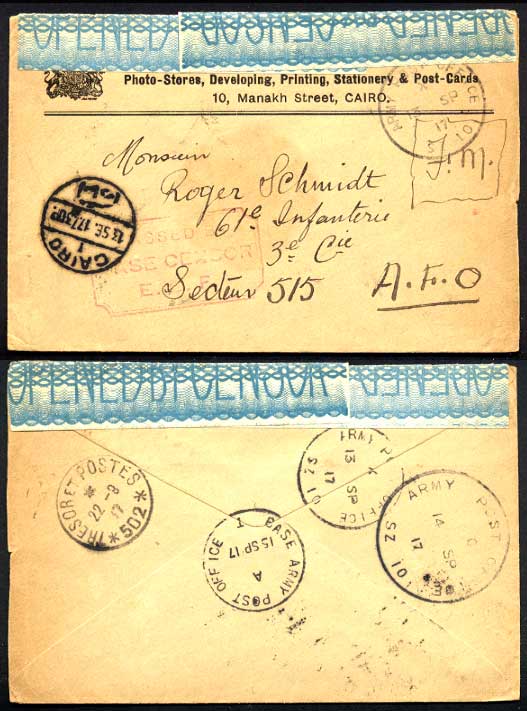 OPENED BY CENSOR
Photo-Stores, Developing, Printing, Stationery & Post-Cards
10, Manakh Street, CAIRO.
ARMY POST OFFICE
SP
17
SZ 10
F.M.
Monsieur
Roger Schmidt
61e Infanterie
3e Cie
Secteur 515
A.F.O
CAIRO
1
13 SE. 17
PASSED BY
BASE CENSOR
E. E. F.
OPENED BY CENSOR
TRESOR ET POSTES
* 502 *
22 - 9
17
ARMY POST OFFICE
13
SP
17
SZ 10
BASE ARMY POST OFFICE 1
A
15 SP 17
ARMY POST OFFICE
14
SP
17
SZ 101